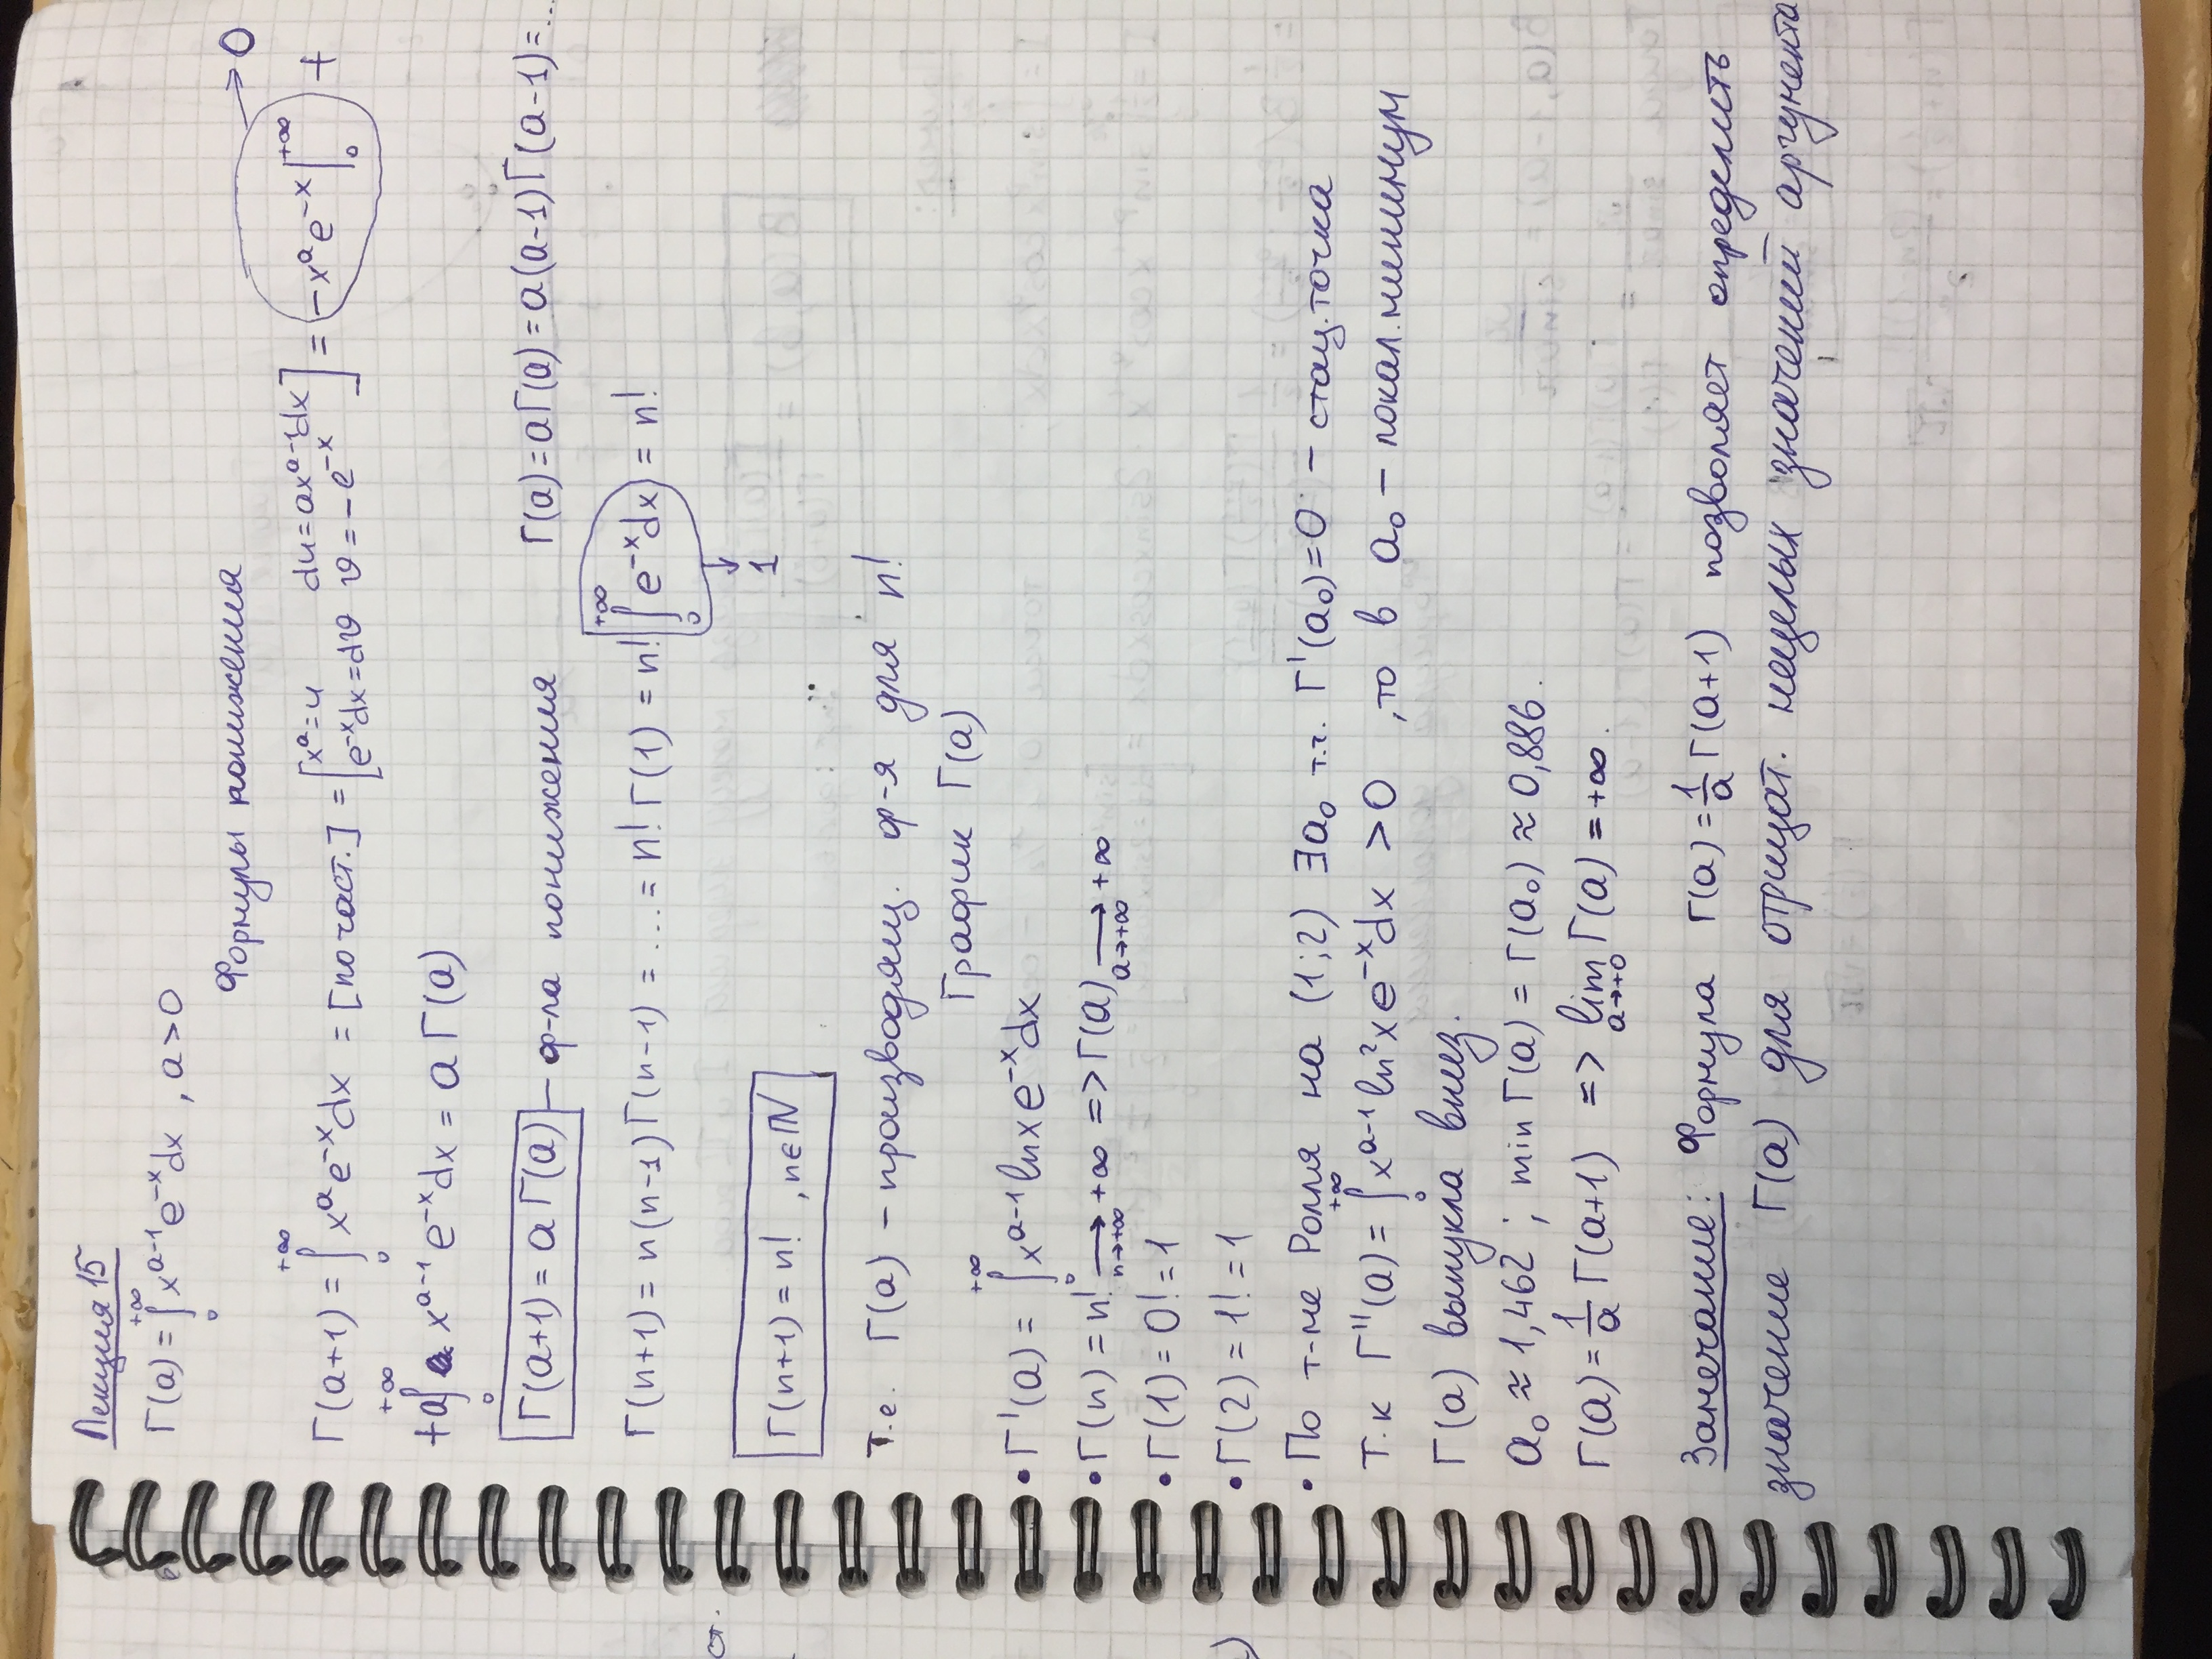 Лекция 15
Γ(a) = ∫₀^{+∞} x^{a-1} e^{-x} dx , a > 0
Формулы понижения
Γ(a+1) = ∫₀^{+∞} x^a e^{-x} dx = [по част.] = [x^a = u du = ax^{a-1}dx e^{-x}dx = dv v = -e^{-x}] = -x^a e^{-x} |₀^{+∞} → 0 +
+ a∫₀^{+∞} x^{a-1} e^{-x} dx = a Γ(a)
Γ(a+1) = a Γ(a) – ф-ла понижения Γ(a) = aΓ(a) = a(a-1)Γ(a-1) = ...
Γ(n+1) = n(n-1)Γ(n-1) = .... = n! Γ(1) = n! ∫₀^{+∞} e^{-x} dx = n!
↓ 1
Γ(n+1) = n! , n∈ℕ
т.е. Γ(a) – производящ. ф-я для n!
График Γ(a)
• Γ'(a) = ∫₀^{+∞} x^{a-1} ln x e^{-x} dx
• Γ(n) = n! →_{n→+∞} +∞ => Γ(a) →_{a→+∞} +∞
• Γ(1) = 0! = 1
• Γ(2) = 1! = 1
• По т-ме Ролля на (1;2) ∃a₀ т.г. Γ'(a₀) = 0 – стац. точка
т.к Γ''(a) = ∫₀^{+∞} x^{a-1} ln²x e^{-x} dx > 0 , то в a₀ – локал. минимум
Γ(a) выпукла вниз.
a₀ ≈ 1,462 ; min Γ(a) = Γ(a₀) ≈ 0,886.
Γ(a) = 1/a Γ(a+1) => lim_{a→+0} Γ(a) = +∞.
Замечание: Формула Γ(a) = 1/a Γ(a+1) позволяет определить
значение Γ(a) для отрицат. нецелых значений аргумента
ст.
)